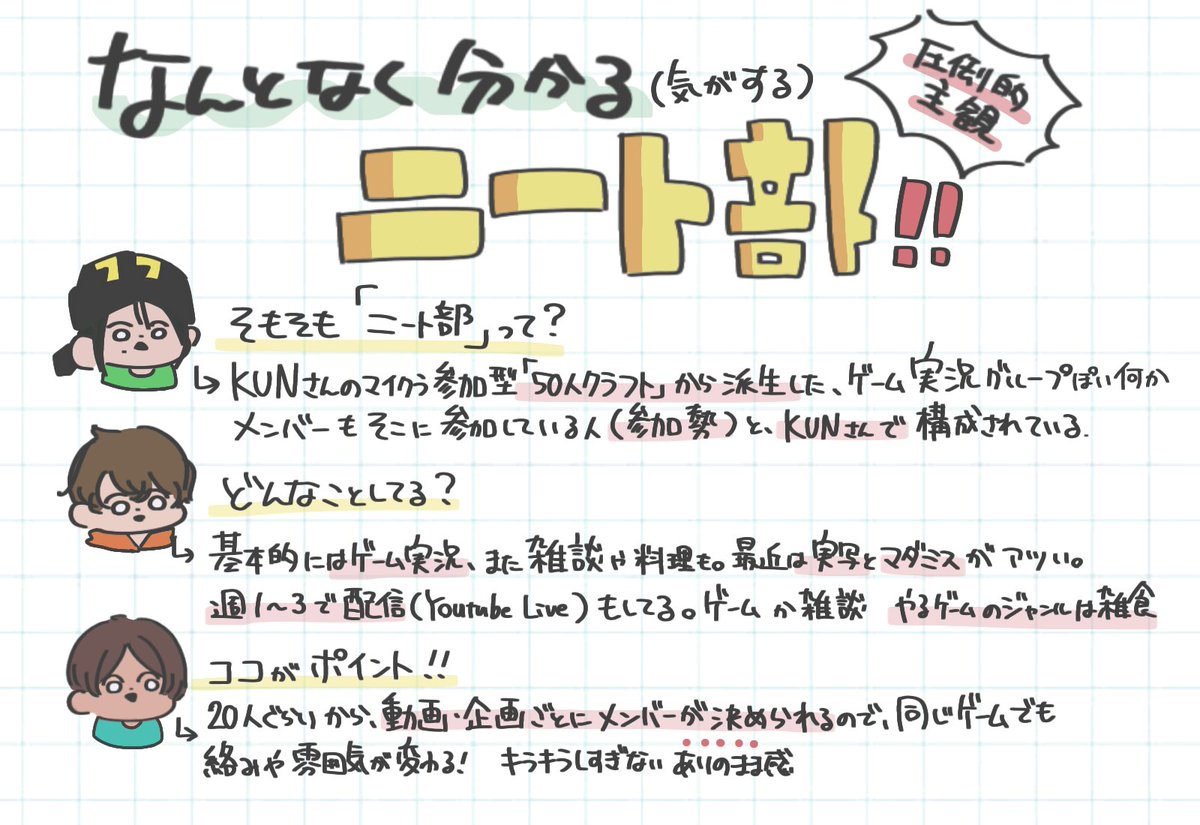 なんとなく分かる(気がする)
圧倒的
主観
ニート部!!
そもそも「ニート部」って?
↳KUNさんのマイクラ参加型「50人クラフト」から派生した、ゲーム実況グループぽい何か
メンバーもそこに参加している人(参加勢)と、KUNさんで構成されている.
どんなことしてる?
↳基本的にはゲーム実況、また雑談や料理も。最近は実写とマダミスがアツい。
週1〜3で配信(Youtube Live)もしてる。ゲームか雑談 やるゲームのジャンルは雑食
ココがポイント!!
↳20人ぐらいから、動画・企画ごとにメンバーが決められるので、同じゲームでも
絡みや雰囲気が変わる! キラキラしすぎない ありのまま感